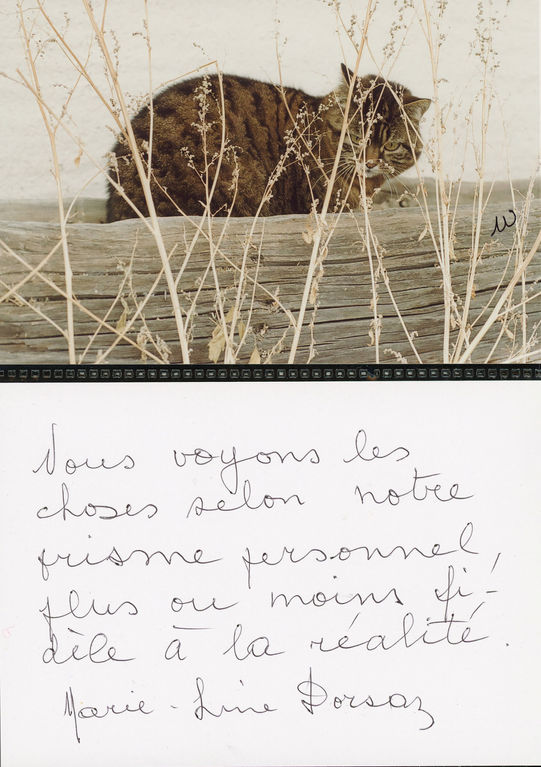 Nous voyons les
choses selon notre
prisme personnel,
plus ou moins fi-
dèle à la réalité.
Marie-Line Dorsaz